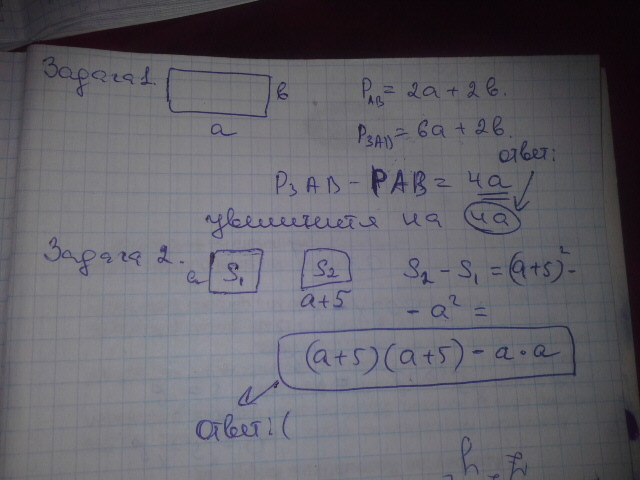 Задача 1.
в
a
P_AB = 2a + 2в.
P_3AB = 6a + 2в.
ответ:
P3AB - PAB = 4a
увеличится на 4a
Задача 2.
a S₁ S₂
a+5
S₂ - S₁ = (a+5)² -
- a² =
(a+5)(a+5) - a·a
ответ: (